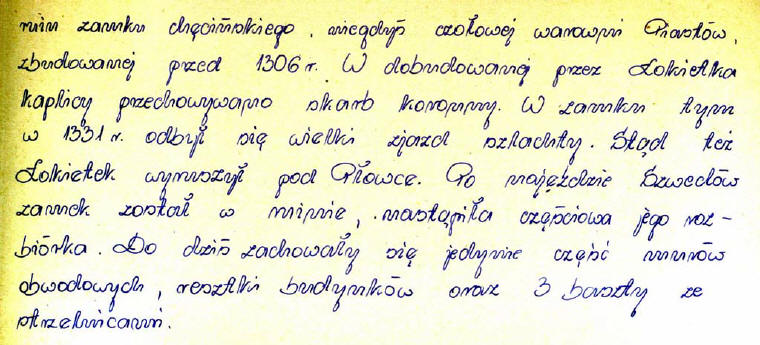 ruin zamku chęcińskiego, niegdyś czołowej warowni Piastów,
zbudowanej przed 1306 r. W dobudowanej przez Łokietka
kaplicy przechowywano skarb koronny. W zamku tym
w 1331 r. odbył się wielki zjazd szlachty. Stąd też
Łokietek wyruszył pod Płowce. Po najeździe Szwedów
zamek został w ruinie, nastąpiła częściowa jego roz-
biórka. Do dziś zachowały się jedynie część murów
obwodowych, resztki budynków oraz 3 baszty ze
strzelnicami.